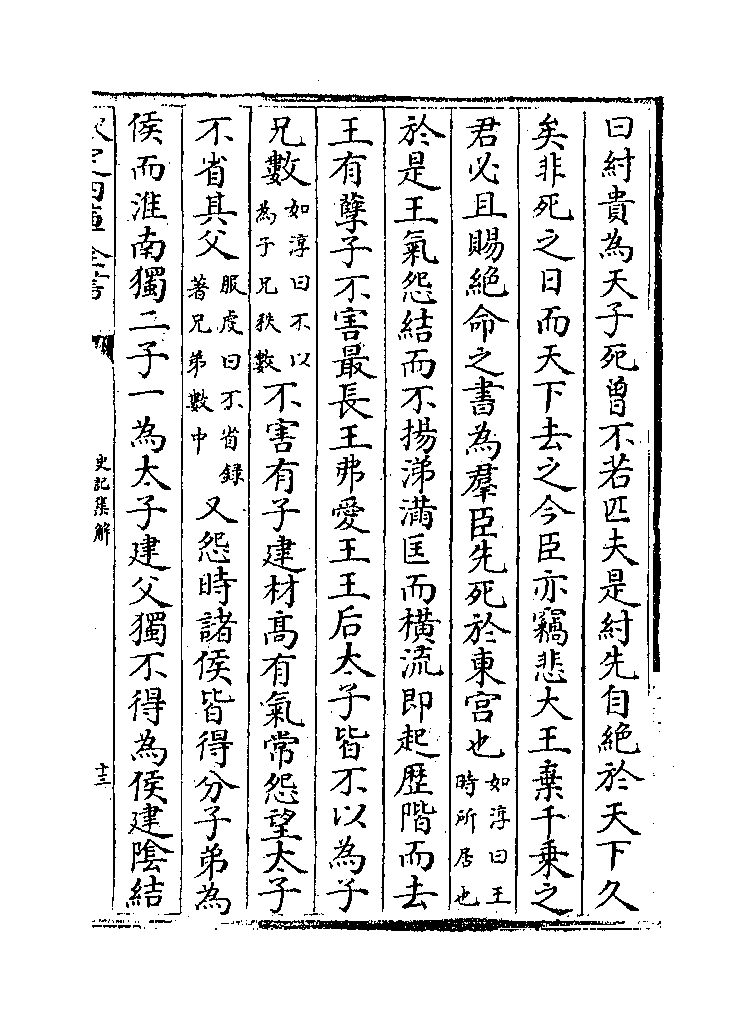 曰紂貴為天子死曾不若匹夫是紂先自絶於天下久
矣非死之日而天下去之今臣亦竊悲大王棄千乘之
君必且賜絶命之書為羣臣先死於東宫也如淳曰王時所居也
於是王氣怨結而不揚涕滿匡而橫流即起歷階而去
王有孽子不害最長王弗愛王王后太子皆不以為子
兄數如淳曰不以為子兄秩數不害有子建材髙有氣常怨望太子
不省其父服虔曰不省録著兄弟數中又怨時諸侯皆得分子弟為
侯而淮南獨二子一為太子建父獨不得為侯建隂結
欽定四庫全書
史記集解
十三